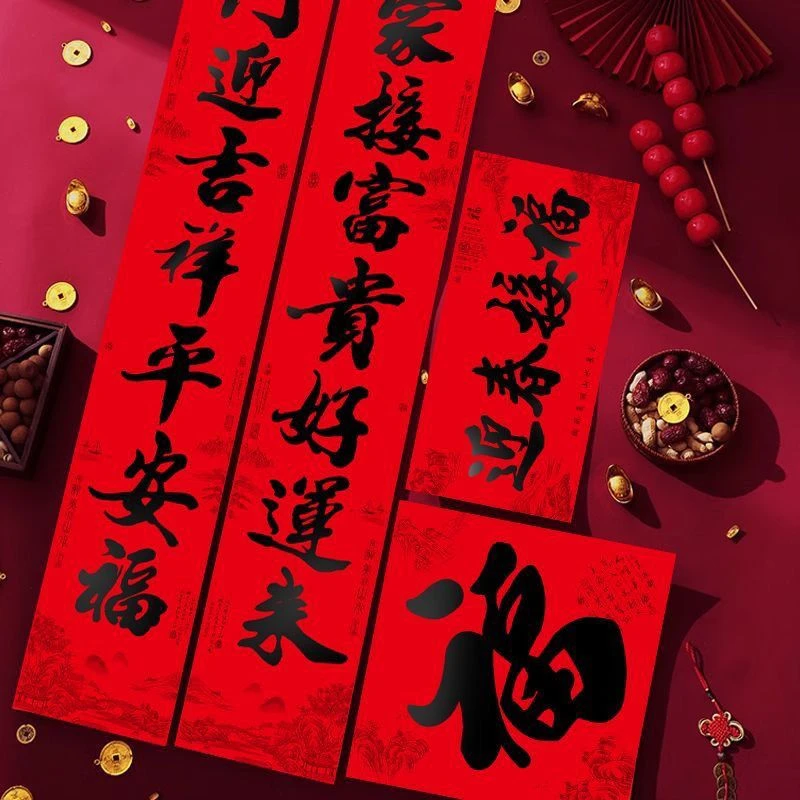 门迎吉祥平安福
家接富貴好運来
迎春接福
福